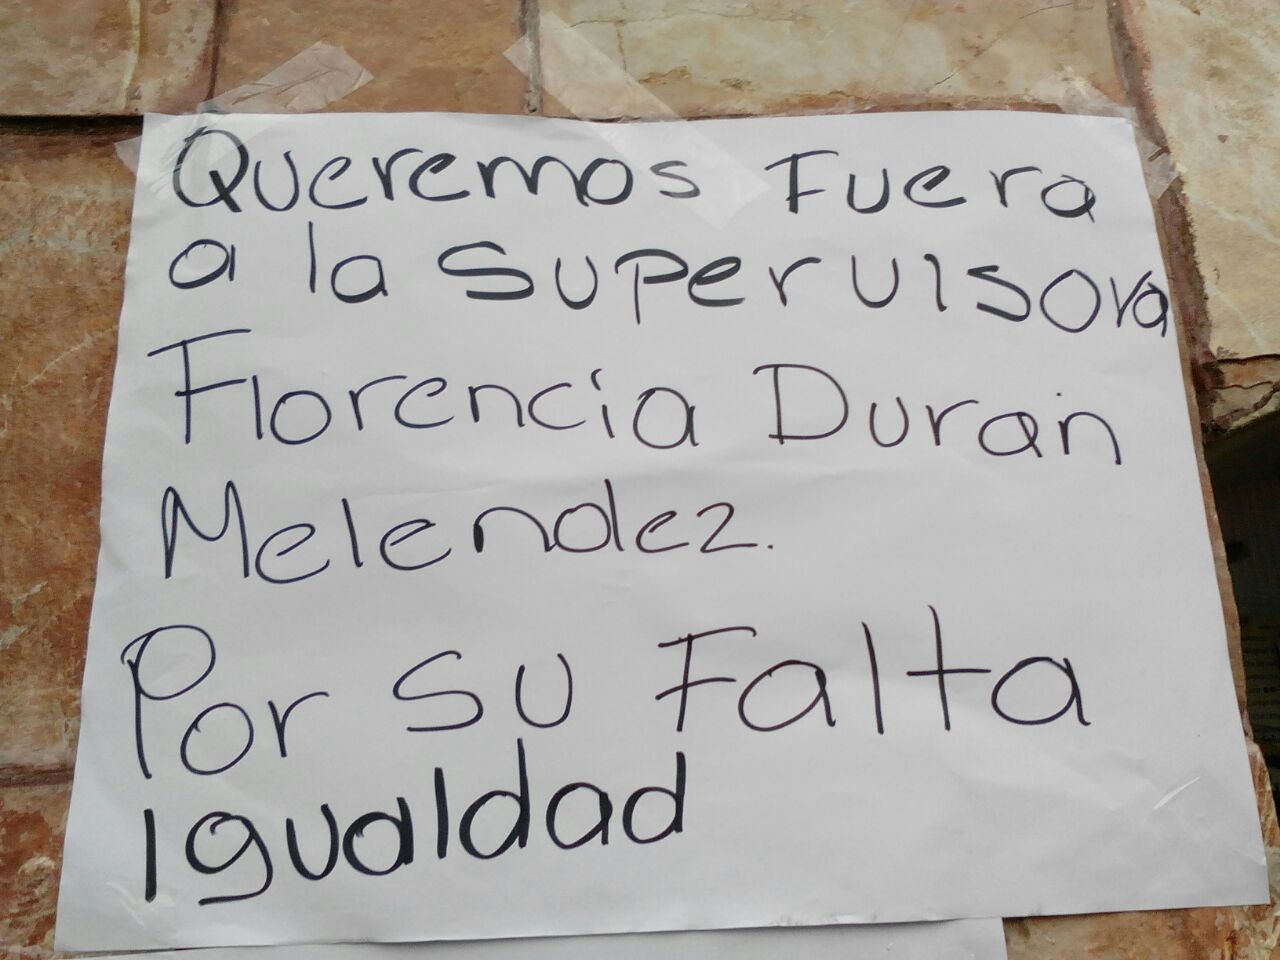 Queremos Fuera
a la Supervisora
Florencia Duran
Melendez.
Por su Falta
igualdad